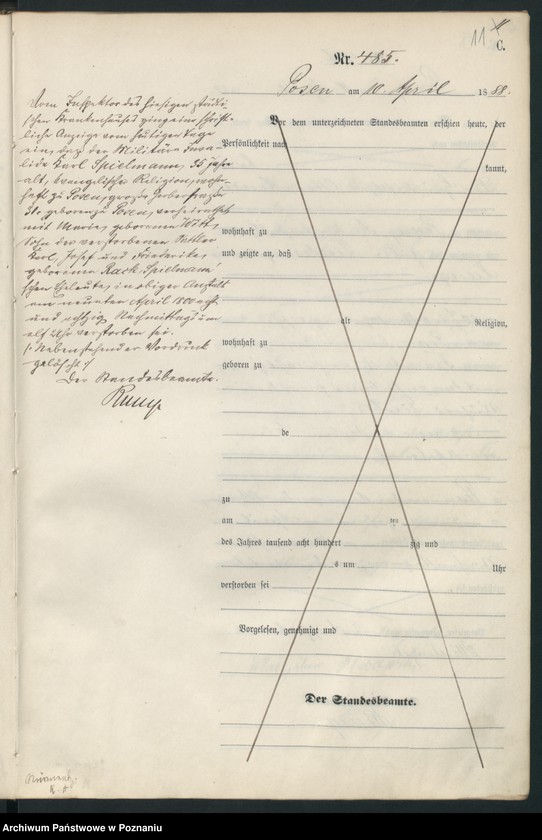 11
C.
Nr. 485.
Posen am 10. April 1888.
Vom Inspektor des hiesigen städti-
schen Krankenhauses ging eine schrift-
liche Anzeige vom heutigen Tage
ein, daß der Militär Inva-
lide Karl Spielmann, 35 Jahre
alt, evangelischer Religion, wohn-
haft zu Posen, große Gerberstraße
geboren zu Posen, verheirathet
mit Maria, geborenen
Sohn des verstorbenen
Karl, Josef und Friederike,
geborenen Rack, Spielmann'
schen Eheleute, in obiger Anstalt
am neunten April 1800 acht
und achtzig Nachmittags um
elf Uhr verstorben sei.
/: Nebenstehender Vordruck
gelöscht :/
Der Standesbeamte.
Vor dem unterzeichneten Standesbeamten erschien heute, der
Persönlichkeit nach
kannt,
wohnhaft zu
und zeigte an, daß
alt Religion,
wohnhaft zu
geboren zu
de
zu
am ten
des Jahres tausend acht hundert zig und
s um Uhr
verstorben sei
Vorgelesen, genehmigt und
Der Standesbeamte.
Archiwum Państwowe w Poznaniu